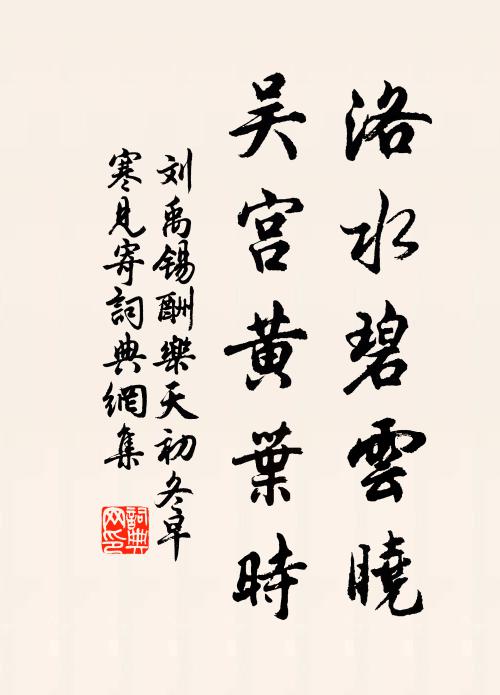 洛水碧雲曉
吴宫黄葉時
刘禹锡酬樂天初冬早
寒見寄詞典網集
詞典网印